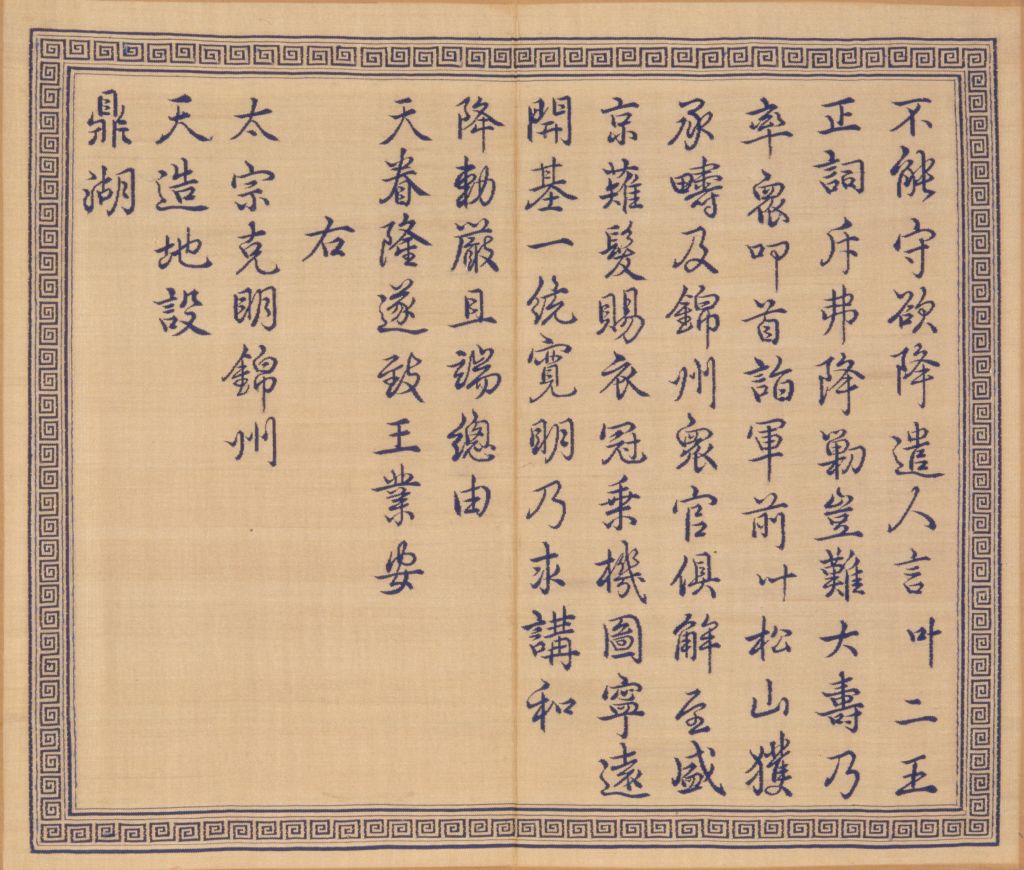 不能守欲降遣人言叶二王
正詞斥弗降勦豈難大壽乃
率眾叩首詣軍前叶松山獲
承疇及錦州眾官俱解至盛
京薙髮賜衣冠乗機圖寧遠
開基一統寬明乃求講和
降勅嚴且端總由
天眷隆遂致王業安
右
太宗克明錦州
天造地設
鼎湖